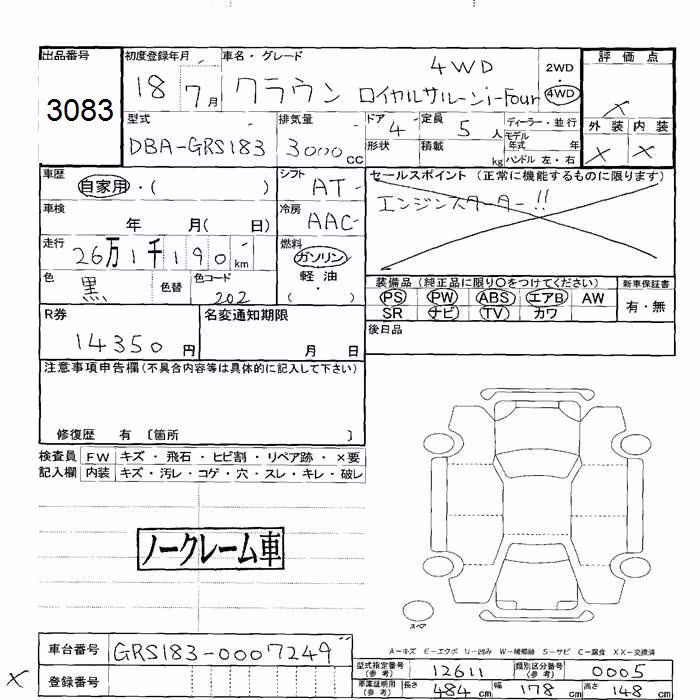 出品番号
3083
初度登録年月
18 7月
車名・グレード
4WD
クラウン ロイヤルサルーンi-Four
2WD
・
4WD
評価点
×
外装 内装
× ×
型式
DBA-GRS183
排気量
3000cc
ドア 4
形状
定員 5人
積載 kg
ディーラー・並行
モデル
年式 年
ハンドル 左・右
車歴
自家用・( )
シフト
AT-
セールスポイント (正常に機能するものに限ります)
エンジンスターター!!
車検
年 月( 日)
冷房
AAC-
走行
26万1千190km
燃料
ガソリン
軽油
・
( )
色
黒
色替
色コード
202
装備品 (純正品に限り○をつけてください)
PS PW ABS エアB AW
SR ナビ TV カワ
新車保証書
有・無
R券
14350円
名変通知期限
月 日
後日品
注意事項申告欄(不具合内容等は具体的に記入して下さい)
修復歴 有 〔箇所 〕
検査員 FW キズ・飛石・ヒビ割・リペア跡・×要
記入欄 内装 キズ・汚レ・コゲ・穴・スレ・キレ・破レ
ノークレーム車
スペア
A-キズ E-エクボ U-凹み W-補修跡 S-サビ C-腐食 XX-交換済
車台番号
GRS183-0007249
× 登録番号
型式指定番号
(参考)
12611
類別区分番号
(参考)
0005
車庫証明用
(参考)
長さ 484cm 幅 178cm 高さ 148cm